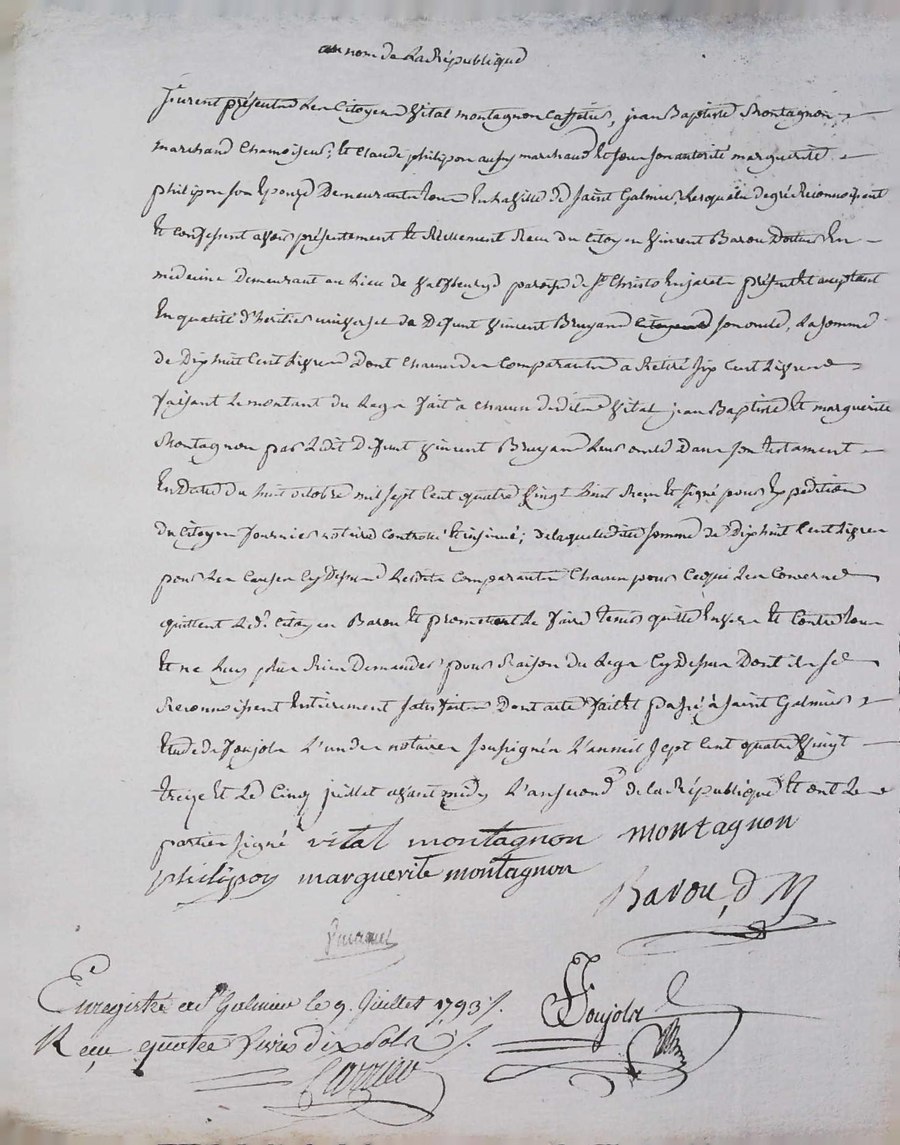 au nom de la République
furent présents les Citoyens Vital montagnon Caffetier, jean Baptiste Montagnon
marchand Chamoiseur, et Claude philipon aussy marchand et sous son autorité marguerite
philipon son Epouze Demeurants tous En la Ville de Saint Galmier, lesquels de gré Reconnoissent
Et Confessent avoir présentement et Réellement Receu du Citoyen Vincent Barou Docteur En
médecine Demeurant au Lieu de parroisse de St Christo En jaret présent et acceptant
En qualité d'héritier universel de Defunt Vincent Bruyas Citoyen son oncle, la somme
de Dix huit Cent Livres Dont chacun des Comparants a Retiré Six Cent Livres
faisant le montant du Legs fait a chacun desdits Vital jean Baptiste Et marguerite
Montagnon par Ledit Defunt Vincent Bruyas Leur oncle Dans son testament
En Datte du huit octobre mil sept Cent quatre Vingt huit Reçu et signé pour Expedition
du Citoyen fournier notaire Controllé et insinué; de laquelle ditte somme de Dix huit Cent Livres
pour Les Causes Cy Dessus Lesdits Comparants Chacun pour Ce qui Les Concerne
quittent Led. Citoyen Barou Et promettent Le faire tenir quitte Envers Et Contre tous
Et ne Luy plus Rien Demander pour Raison du Legs Cy Dessus Dont ils se
Reconnoissent Entierement satisfaits Dont acte fait et passé à Saint Galmier
Etude de foujols L'un des notaires soussignés L'an mil sept Cent quatre Vingt
treize et Le Cinq juillet avant midy L'an second de la République Et ont Les
parties signé vital montagnon montagnon
philipon marguerite montagnon
Barou, d M
Enregistré a St Galmier le 9. Juillet 1793.
Reçu quatre Livres dix Sols
foujols